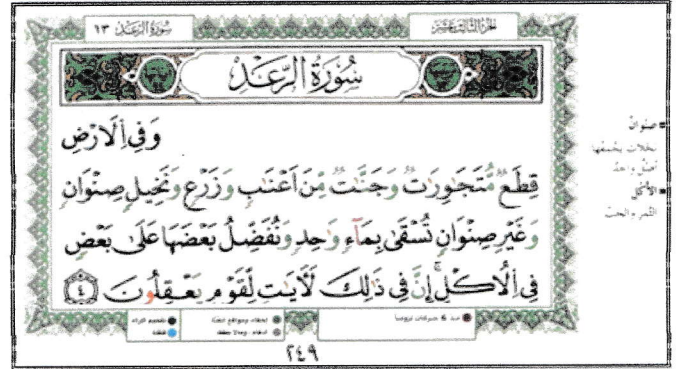 الجزء الثالث عشر
سورة الرعد ١٣
سُورَةُ الرَّعْدِ
وَفِي اِ۬لَارْضِ
قِطَعٞ مُّتَجَٰوِرَٰتٞ وَجَنَّٰتٞ مِّنَ اَعْنَٰبٖ وَزَرْعٖ وَنَخِيلٖ صِنْوَانٖ
وَغَيْرِ صِنْوَانٖ تُسْقَىٰ بِمَآءٖ وَٰحِدٖ وَنُفَضِّلُ بَعْضَهَا عَلَىٰ بَعْضٖ
فِي اِ۬لُاكْلِۖ إِنَّ فِي ذَٰلِكَ لَأٓيَٰتٖ لِّقَوْمٖ يَعْقِلُونَ ٤
صنوان
نخلات يجمعها
أصل واحد
الأكل
الثمر والحب
مد 6 حركات لزوما
إخفاء، ومواقع الغنة
إدغام، وما لا يلفظ
تفخيم الراء
قلقلة
٢٤٩